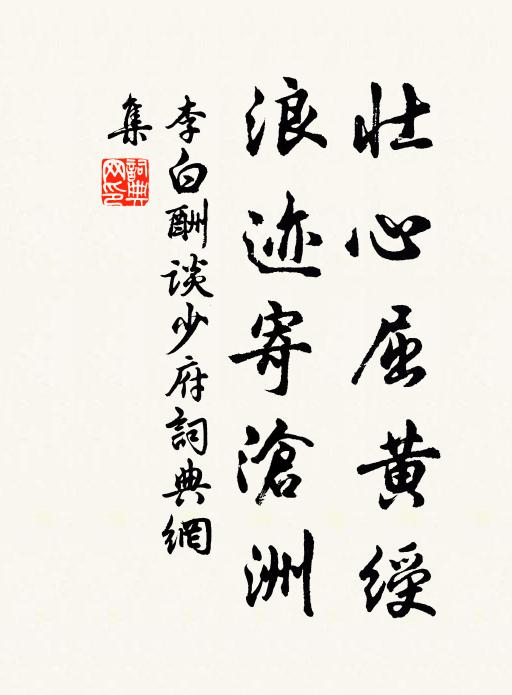 壮心屈黄綬
浪迹寄滄洲
李白酬谈少府詞典網
集
詞典網印